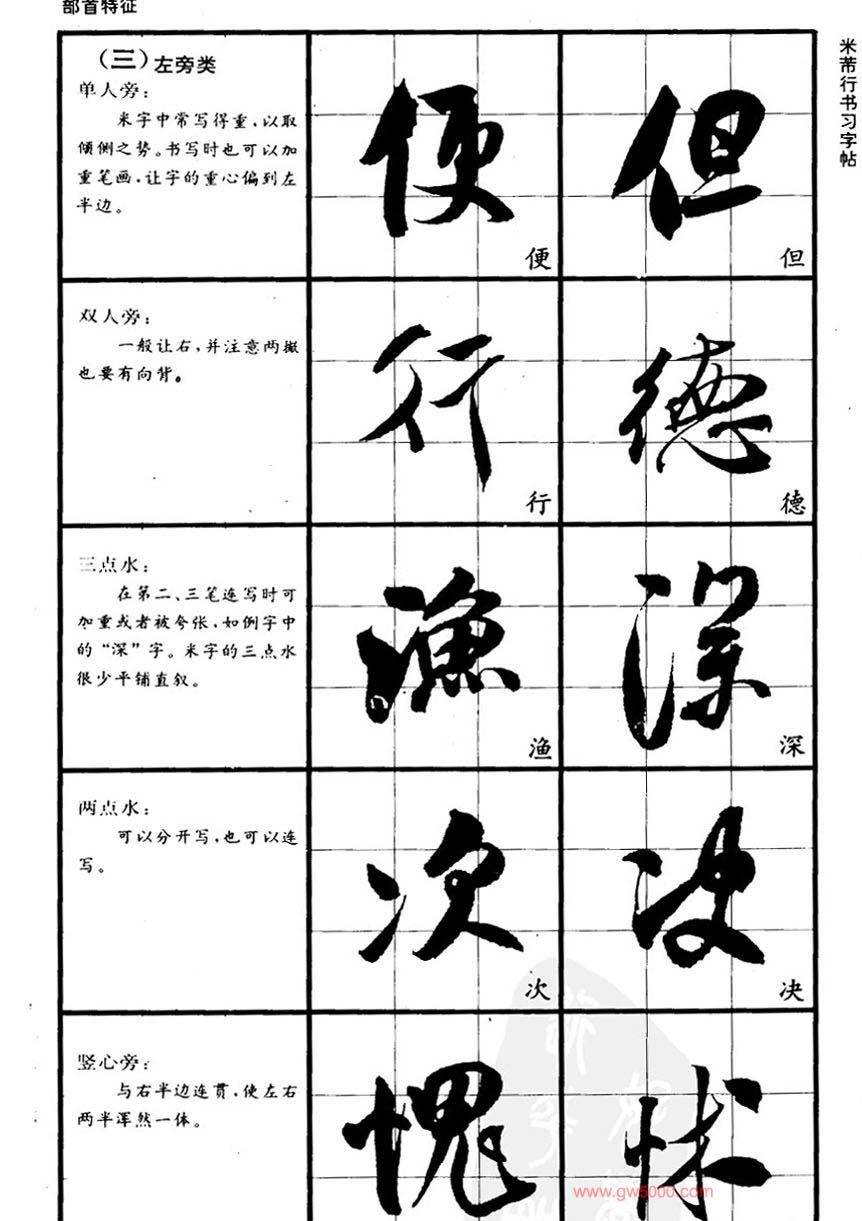 部首特征
米芾行书习字帖
（三）左旁类
单人旁：
米字中常写得重，以取
倾侧之势。书写时也可以加
重笔画，让字的重心偏到左
半边。
便
便
但
但
双人旁：
一般让右，并注意两撇
也要有向背。
行
行
德
德
三点水：
在第二、三笔连写时可
加重或者被夸张，如例字中
的“深”字。米字的三点水
很少平铺直叙。
渔
渔
深
深
两点水：
可以分开写，也可以连
写。
次
次
决
决
竖心旁：
与右半边连贯，使左右
两半浑然一体。
愧
www.gw5000.com